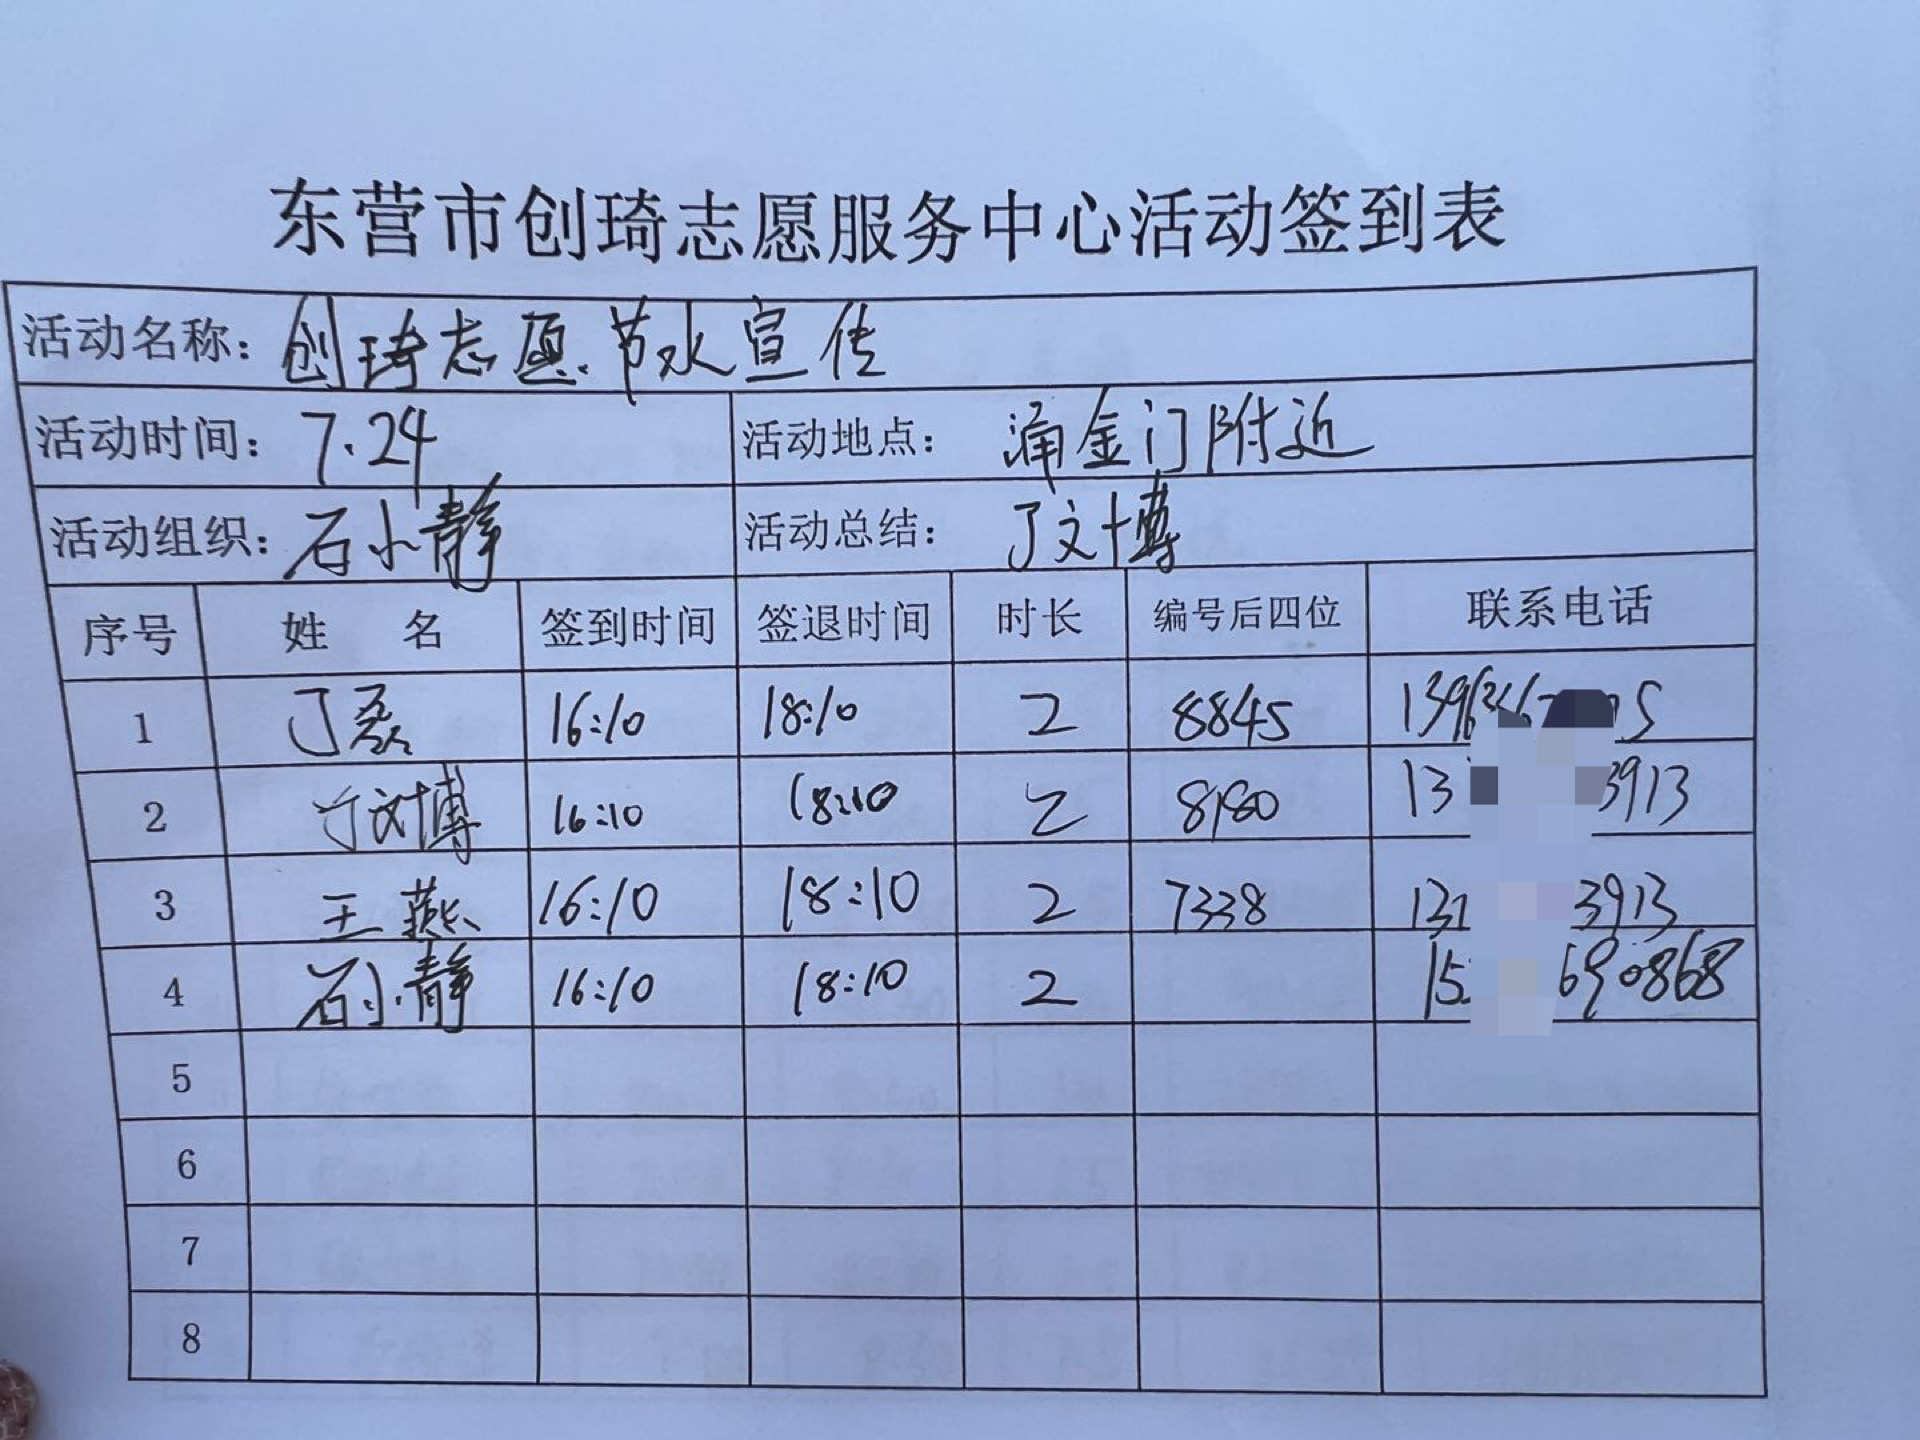 东营市创琦志愿服务中心活动签到表
活动名称：创琦志愿.节水宣传
活动时间：7.24 活动地点：涌金门附近
活动组织：石小静 活动总结：丁文博
序号 姓名 签到时间 签退时间 时长 编号后四位 联系电话
1 丁磊 16:10 18:10 2 8845
2 丁文博 16:10 18:10 2 8180 13 3913
3 王燕 16:10 18:10 2 7338 131 3913
4 石小静 16:10 18:10 2 15 690868
5
6
7
8